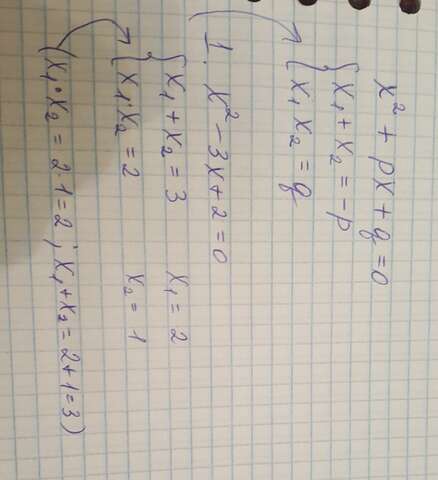 x² + px + q = 0
{ x₁ + x₂ = -p
{ x₁ x₂ = q
1. x² - 3x + 2 = 0
{ x₁ + x₂ = 3 x₁ = 2
{ x₁ · x₂ = 2 x₂ = 1
(x₁ · x₂ = 2·1 = 2 ; x₁ + x₂ = 2+1 = 3)